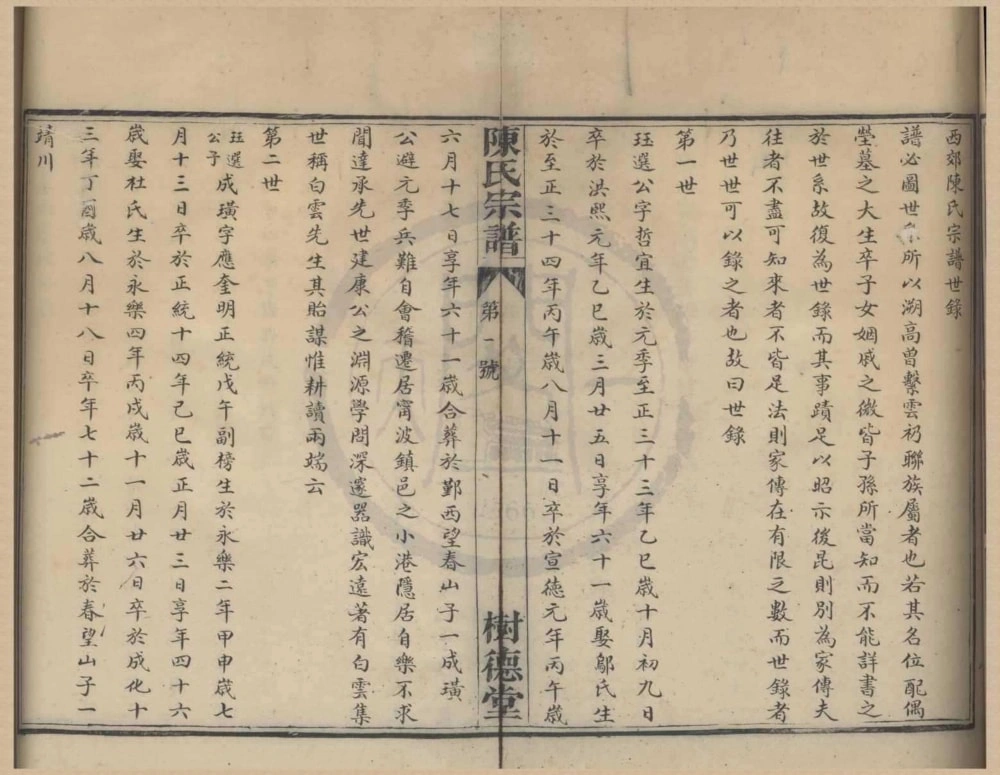 西郊陳氏宗譜世錄
譜必圖世系所以溯高曾繫雲礽聯族屬者也若其名位配偶
塋墓之大生卒子女姻戚之微皆子孫所當知而不能詳書之
於世系故復為世錄而其事蹟足以昭示後昆則別為家傳夫
往者不盡可知來者不皆足法則家傳在有限之數而世錄者
乃世世可以錄之者也故曰世錄
第一世
珏選公字哲宜生於元季至正三十三年乙巳歲十月初九日
卒於洪熙元年乙巳歲三月廿五日享年六十一歲娶鄔氏生
於至正三十四年丙午歲八月十一日卒於宣德元年丙午歲
陳氏宗譜
第一號
樹德堂
六月十七日享年六十一歲合葬於鄞西望春山子一成璜
公避元季兵難自會稽遷居甯波鎮邑之小港隱居自樂不求
聞達承先世建康公之淵源學問深邃器識宏遠著有白雲集
世稱白雲先生其貽謀惟耕讀兩端云
第二世
珏選公子成璜字應奎明正統戊午副榜生於永樂二年甲申歲七
月十三日卒於正統十四年己巳歲正月廿三日享年四十六
歲娶杜氏生於永樂四年丙戌歲十一月廿六日卒於成化十
三年丁酉歲八月十八日卒年七十二歲合葬於春望山子一
靖川